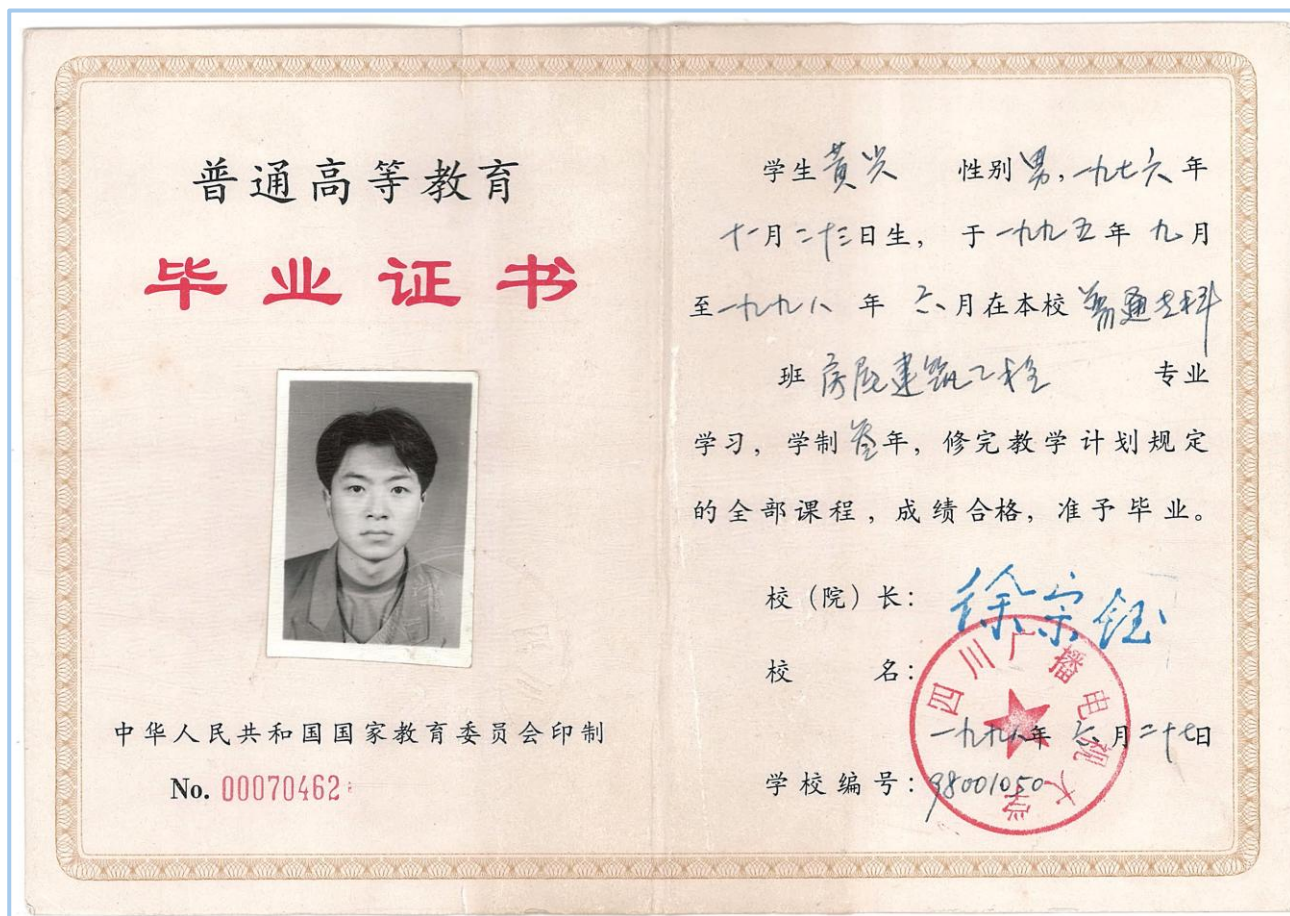 普通高等教育
毕业证书
中华人民共和国国家教育委员会印制
No. 00070462
学生黄兴 性别男，一九七六年
十一月二十三日生，于一九九五年九月
至一九九八年六月在本校普通专科
班房屋建筑工程专业
学习，学制叁年，修完教学计划规定
的全部课程，成绩合格，准予毕业。
校（院）长：徐宗钰
校名：
四川广播电视大学
一九九八年六月二十七日
学校编号：98001050